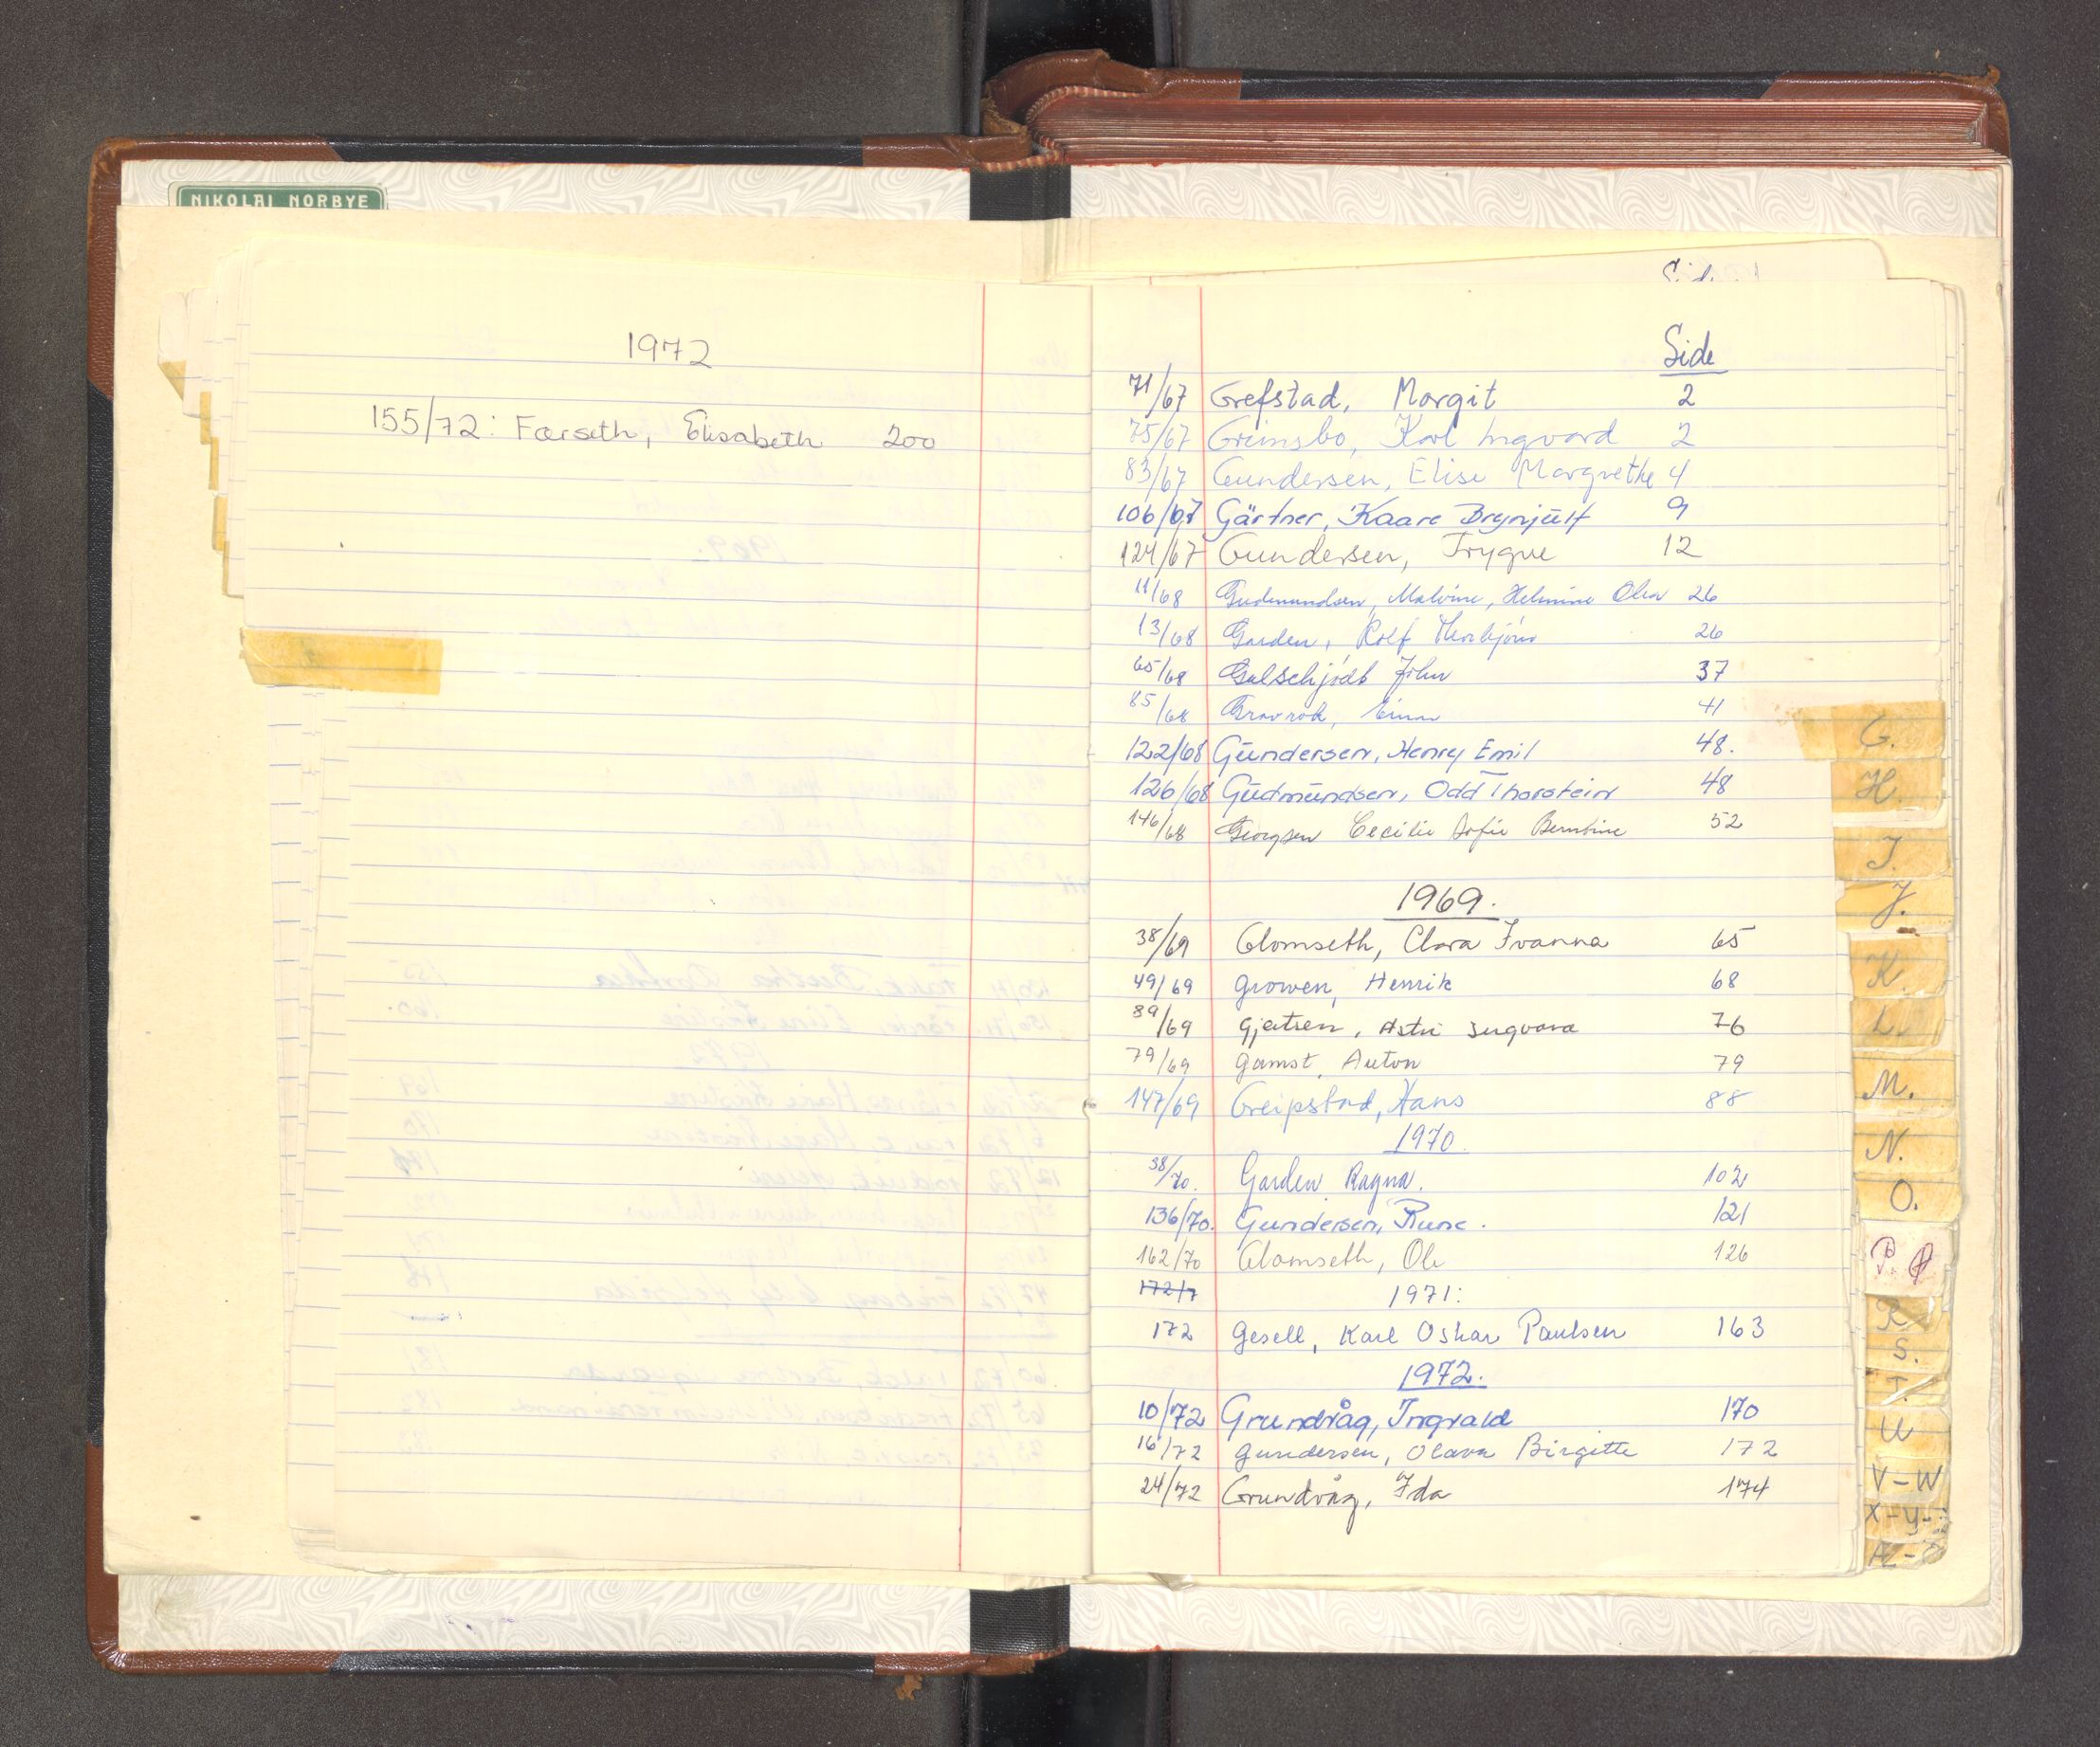 NIKOLAI NORBYE
1972
155/72: Færseth, Elisabeth 200
Side
71/67 Grefstad, Margit 2
75/67 Grimsbo, Karl Ingvard 2
83/67 Gundersen, Elise Margrethe 4
106/67 Gärtner, Kaare Brynjulf 9
124/67 Gundersen, Trygve 12
11/68 Gudmundsen, Malvine, Helmine Olea 26
13/68 Garden, Rolf Thorbjørn 26
65/68 Galschjødt John 37
85/68 Gravrok, Einar 41
122/68 Gundersen, Henry Emil 48.
126/68 Gudmundsen, Odd Thorstein 48
146/68 Georgsen Cecilie Sofie Berntine 52
1969.
38/69 Glomseth, Clara Ivanna 65
49/69 Growen, Henrik 68
89/69 Gjertsen, Astri Ingvara 76
79/69 Gamst, Anton 79
147/69 Greipstad, Hans 88
1970.
38/70. Garden Ragna. 102
136/70. Gundersen, Rune. 121
162/70 Glomseth, Ole 126
172/7 1971:
172 Gesell, Karl Oskar Paulsen 163
1972.
10/72 Grundvåg, Ingvald 170
16/72 Gundersen, Olava Birgitte 172
24/72 Grundvåg, Ida 174
G.
H.
I.
J.
K.
L.
M.
N.
O.
P.
R
S.
T.
U
V-W